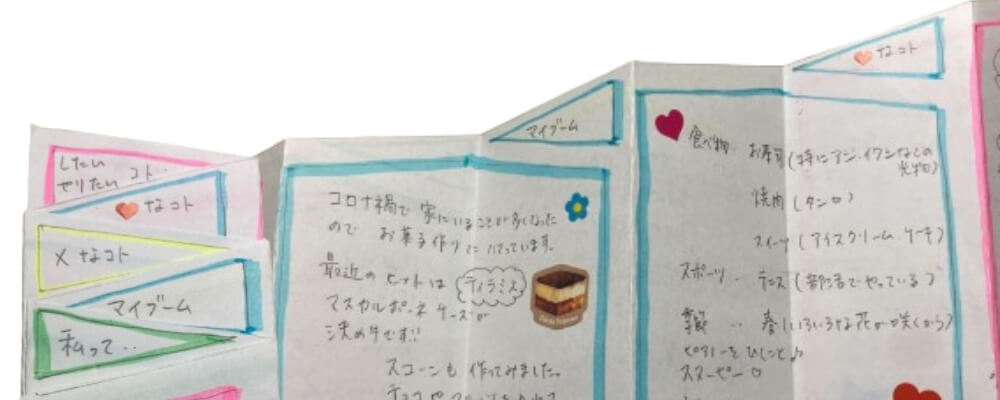 したい
やりたい コト‥
なコト
× なコト
マイブーム
私って‥
マイブーム
コロナ禍で 家にいることが多くなった
ので お菓子作りにハマっています。
最近の ヒットは ティラミス
マスカルポーネ チーズが
決め手です!!
スコーンも 作ってみました。
なコト
食べ物‥ お寿司(特にアジ、イワシなどの
光物)
焼肉(タン)
スイーツ(アイスクリーム、ケーキ)
スポーツ‥ テニス(部活でやっている)
季節‥ 春(いろいろな花が咲くから)
ピアノをひくこと♪
スヌーピー♡